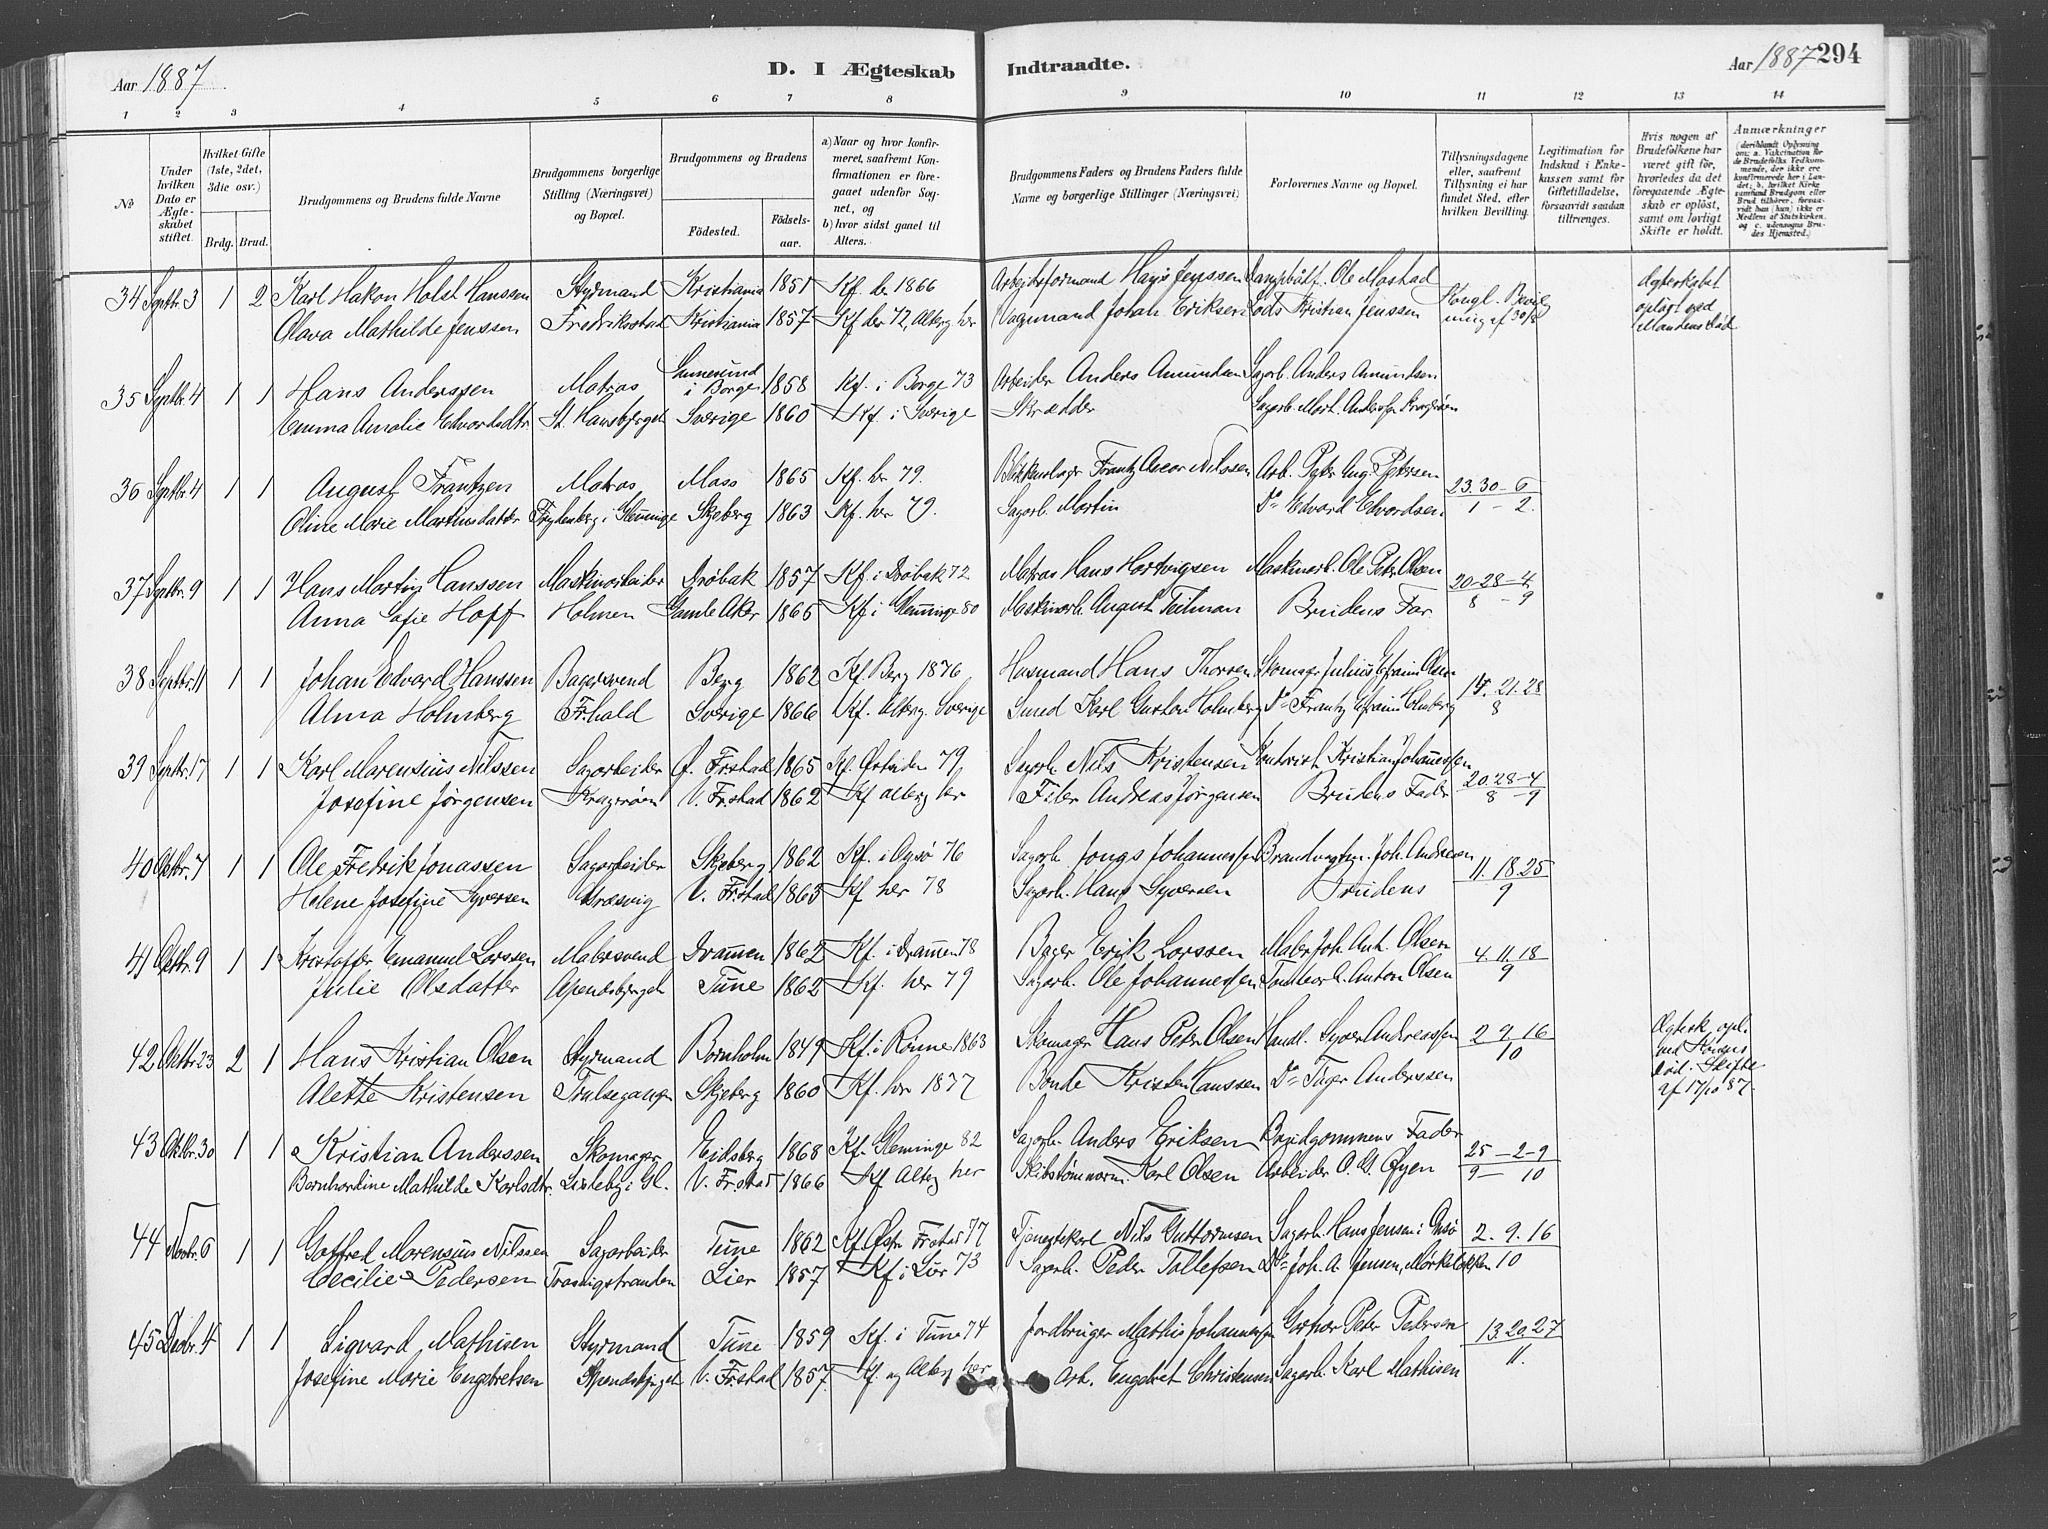 Aar 1887
D. I Ægteskab Indtraadte.
Aar 1887 294
1 2 3 4 5 6 7 8 9 10 11 12 13 14
No
Under hvilken Dato er Ægteskabet stiftet.
Hvilket Gifte (1ste, 2det, 3die osv.)
Brdg. Brud.
Brudgommens og Brudens fulde Navne
Brudgommens borgerlige Stilling (Næringsvei) og Bopæl.
Brudgommens og Brudens
Födested. Födselsaar.
a) Naar og hvor konfirmeret, saafremt Konfirmationen er foregaaet udenfor Sognet, og b) hvor sidst gaaet til Alters.
Brudgommens Faders og Brudens Faders fulde Navne og borgerlige Stillinger (Næringsvei)
Forlovernes Navne og Bopæl.
Tillysningsdagene eller, saafremt Tillysning ei har fundet Sted, efter hvilken Bevilling.
Legitimation for Indskud i Enkekassen samt for Giftetilladelse, forsaavidt saadan tiltrænges.
Hvis nogen af Brudefolkene har været gift för, hvorledes da det foregaaende Ægteskab er oplöst, samt om lovligt Skifte er holdt.
Anmærkninger (deriblandt Oplysning om: a. Vakcination for de Brudefolks Vedkommende, der ikke ere konfirmerede her i Landet; b. hvilket Kirkesamfund Brudgom eller Brud tilhörer, forsaavidt han (hun) ikke er Medlem af Statskirken, og c. udensogns Brudes Hjemsted.)
34 Septbr. 3 1 2 Karl Hakon Holst Hanssen Styrmand Kristiania 1851 Kf. her 1866 Arbejdsformand Hans Jenssen Dampbåtf. Ole Mostad Kongl. Bevilgning af 30/8 Ægteskabet opløst ved Mandens Død
Olava Mathilde Jenssen Fredriksstad Kristiania 1857 Kf her 72, Alterg her Johan Eriksen Lods Kristian Jenssen
35 Septbr. 4 1 1 Hans Anderssen Matros i Borge 1858 Kf. i Borge 73 Arbeider Anders Amundsen Sagarb. Anders Amundsen
Emma Amalie Edvardsdtr. St. Hansbjerget Sverige 1860 Kf. i Sverige Skrædder Sagarb. Mart. Anderssen Kragerøen
36 Septbr. 4 1 1 August Frantzen Matros Moss 1865 Kf. her 79. Frantz Oscar Nilssen Arb. Peter Aug. Petersen 23. 30 - 6
Oline Marie Martinsdatter i Glemminge Skjeberg 1863 Kf. her 79. Sagarb. Martin Do Edvard Edvardsen 1 - 2.
37 Septbr. 9 1 1 Hans Martin Hanssen Maskinarbeider Drøbak 1857 Kf. i Drøbak 72 Matros Hans Hartvigsen Maskinarb. Ole Peter Olsen 20 - 28 - 4
Anna Sofie Hoff Holmen Gamle Aker 1865 Kf. i Glemminge 80 Maskinarb. August Teilman Brudens Far 8 - 9
38 Septbr. 11 1 1 Johan Edvard Hanssen Bagersvend Berg 1862 Kf. Berg 1876 Husmand Hans Thoresen Skomager Julius Efraim Olsen 14. 21. 28
Alma Holmberg Fr.hald Sverige 1866 Kf. Alterg. Sverige Karl Gustav Holmberg Do Frantz Efraim Holmberg 8
39 Septbr. 17 1 1 Karl Marensius Nilssen Sagarbeider Ø. Fr.stad 1865 Kf. Østsiden 79. Sagarb. Nils Kristensen Kristian Johannessen 20. 28 - 4
Josefine Jørgensen Kragerøen V. Fr.stad 1862 Kf alterg her Filer Andreas Jørgensen Brudens Fader 8 - 9
40 Oktbr. 7 1 1 Ole Fredrik Jonassen Sagarbeider Skjeberg 1862 Kf. i Onsø 76 Sagarb. Jonas Johannessen Joh. Andresen 11. 18. 25
Helene Josefine Syversen V. Fr.stad 1863 Kf her 78 Sagarb. Hans Syversen Brudens 9
41 Oktbr. 9 1 1 Kristoffer Emanuel Larssen Malersvend Drammen 1862 Kf. i Drammen 78 Bager Erik Larssen Maler Joh. Ant. Olsen 4. 11. 18
Julie Olsdatter Apenesbjerget Tune 1862 Kf. her 79 Sagarb. Ole Johannessen Tomtearb. Anton Olsen 9
42 Oktbr 23 2 1 Hans Kristian Olsen Styrmand Bornholm 1849 Kf. i Rønne 1863 Skomager Hans Peter Olsen Handl. Syver Andreassen 2 9. 16 Ægtesk. opl. ved Konens Død. Skifte af 17/10 87.
Alette Kristensen Trulsegangen Skjeberg 1860 Kf. her 1877 Bonde Kristen Hanssen Do Tager Anderssen 10
43 Oktbr. 30 1 1 Kristian Anderssen Skomager Eidsberg 1868 Kf. Glemminge 82 Sagarb. Anders Eriksen Brudgommens Fader 25 - 2 - 9
Bernhardine Mathilde Karlsdtr. Lisleby i Gl. V. Fr.stad 1866 Kf Alterg her Skibstømmerm. Karl Olsen Arbeider O. G. Øyen 9 - 10
44 Novbr. 6 1 1 Gotfred Marensius Nilssen Sagarbeider Tune 1862 Kf. Østr. Fr.stad 77 Tjenestekarl Nils Guttormsen Sagarb. Hans Jensen i Onsø 2. 9. 16
Cecilie Pedersen Trosvigstranden Lier 1857 Kf. i Lier 73 Sagarb. Peder Tollefsen Do Joh. A. Jensen, Mørkeløkken 10
45 Decbr. 4 1 1 Sigvard Mathisen Styrmand Tune 1859 Kf. i Tune 74 Jordbruger Mathis Johannessen Peter Pedersen 13. 20. 27
Josefine Marie Engebretsen Apenesbjerget V. Fr.stad 1857. Kf. og Alterg her Arb. Engebret Christensen Sagarb. Karl Mathisen 11.